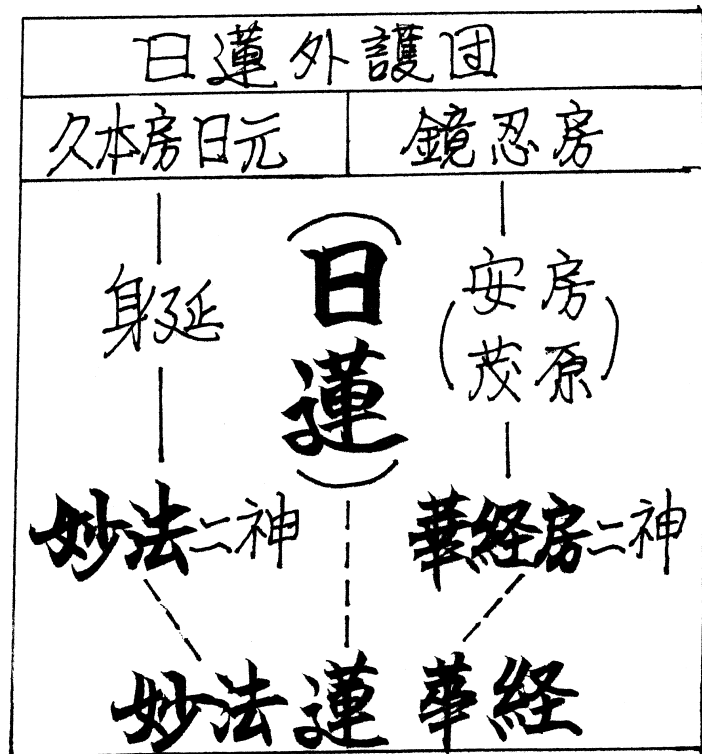 日蓮外護団
久本房日元 鏡忍房
身延 (日蓮) (安房 茂原)
妙法二神 華経房二神
妙法蓮華経